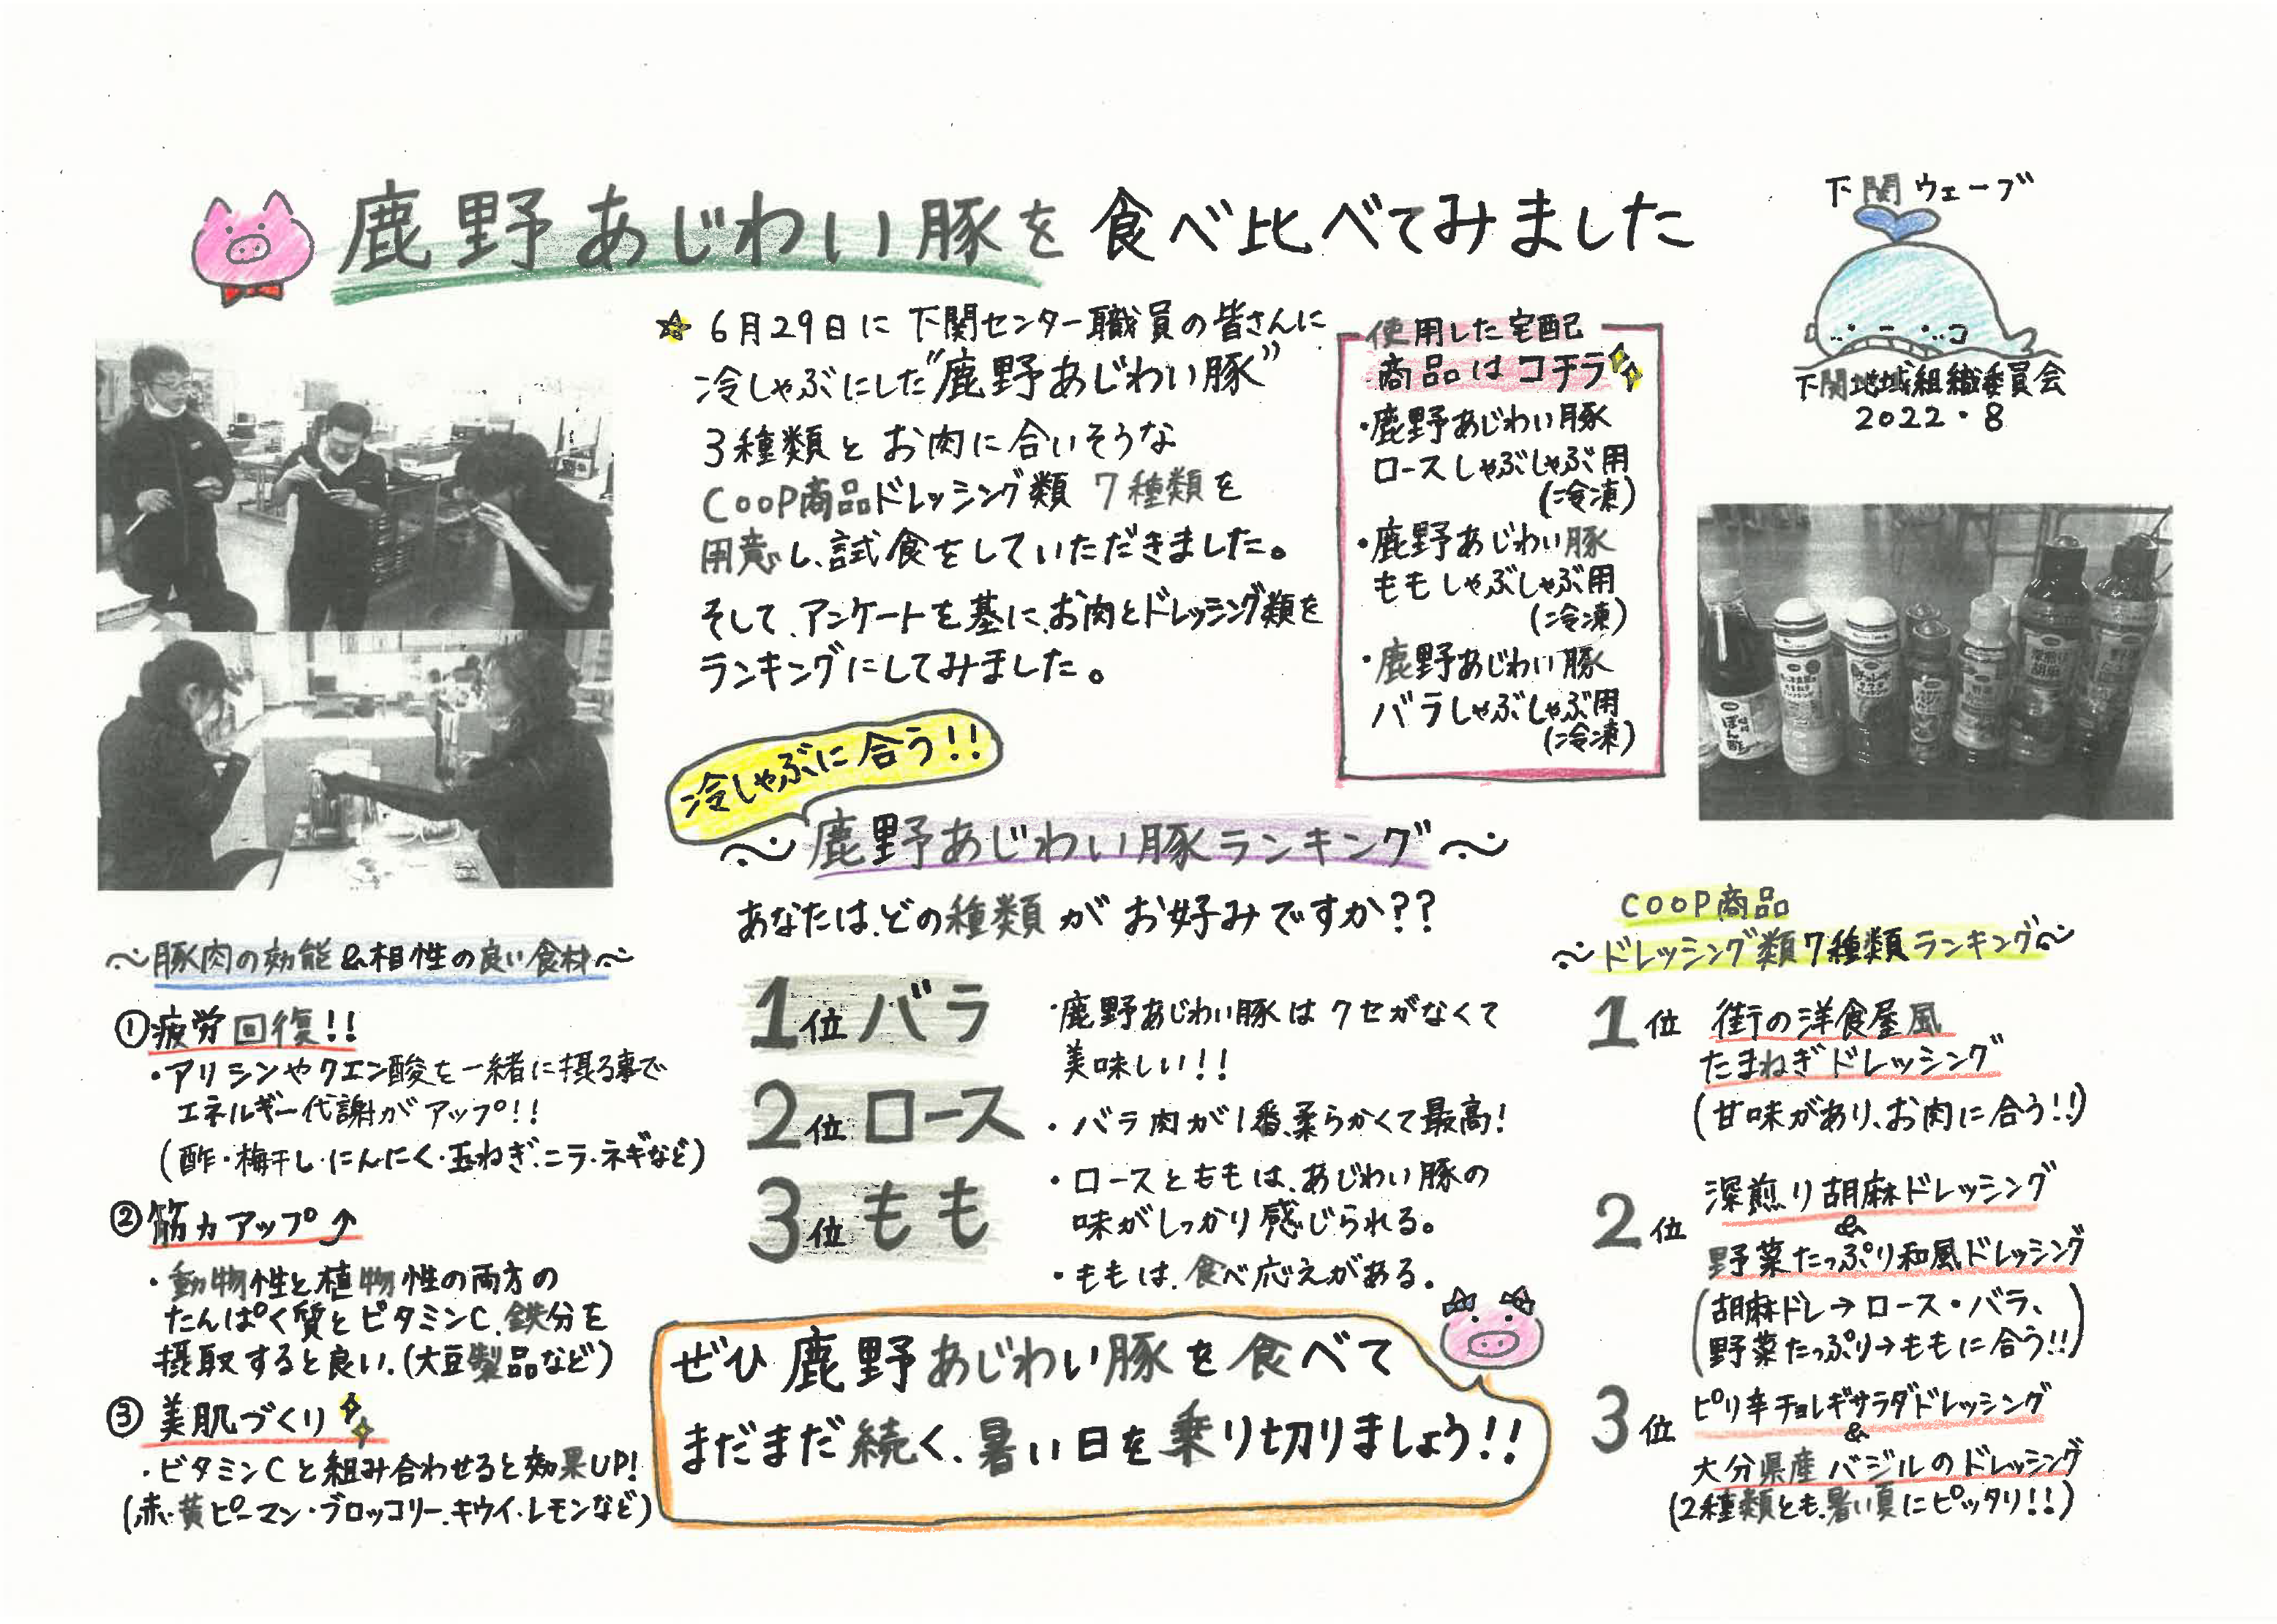 鹿野あじわい豚を食べ比べてみました
下関ウェーブ
下関地域組織委員会
2022・8
☆6月29日に下関センター職員の皆さんに
冷しゃぶにした"鹿野あじわい豚"
3種類とお肉に合いそうな
COOP商品ドレッシング類 7種類を
用意し、試食をしていただきました。
そして、アンケートを基に、お肉とドレッシング類を
ランキングにしてみました。
使用した宅配
商品はコチラ
・鹿野あじわい豚
ロースしゃぶしゃぶ用
(冷凍)
・鹿野あじわい豚
ももしゃぶしゃぶ用
(冷凍)
・鹿野あじわい豚
バラしゃぶしゃぶ用
(冷凍)
冷しゃぶに合う!!
〜鹿野あじわい豚ランキング〜
あなたは、どの種類がお好みですか??
1位 バラ
2位 ロース
3位 もも
・鹿野あじわい豚はクセがなくて
美味しい!!
・バラ肉が1番、柔らかくて最高!
・ロースとももは、あじわい豚の
味がしっかり感じられる。
・ももは、食べ応えがある。
ぜひ鹿野あじわい豚を食べて
まだまだ続く、暑い日を乗り切りましょう!!
〜豚肉の効能&相性の良い食材〜
①疲労回復!!
・アリシンやクエン酸を一緒に摂る事で
エネルギー代謝がアップ!!
(酢・梅干し・にんにく・玉ねぎ・ニラ・ネギなど)
②筋力アップ⤴
・動物性と植物性の両方の
たんぱく質とビタミンC、鉄分を
摂取すると良い。(大豆製品など)
③美肌づくり
・ビタミンCと組み合わせると効果UP!
(赤・黄ピーマン・ブロッコリー・キウイ・レモンなど)
COOP商品
〜ドレッシング類7種類ランキング〜
1位 街の洋食屋風
たまねぎドレッシング
(甘味があり、お肉に合う!!)
2位 深煎り胡麻ドレッシング
&
野菜たっぷり和風ドレッシング
(胡麻ドレ→ロース・バラ、
野菜たっぷり→ももに合う!!)
3位 ピリ辛チョレギサラダドレッシング
&
大分県産バジルのドレッシング
(2種類とも、暑い夏にピッタリ!!)